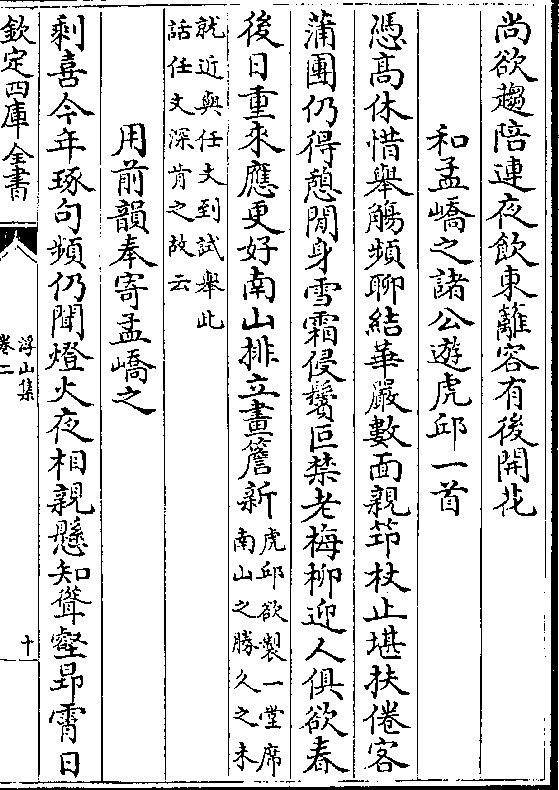 尚欲趨陪連夜飲東籬容有後開花
和孟嶠之諸公遊虎邱一首
憑髙休惜舉觴頻聊結華嚴數面親笻杖止堪扶倦客
蒲團仍得憩閒身雪霜侵鬢叵禁老梅柳迎人俱欲春
後日重來應更好南山排立畫簷新
虎邱欲製一堂席
南山之勝久之未
就近與任夫到試舉此
話任文深肯之故云
用前韻奉寄孟嶠之
剩喜今年琢句頻仍聞燈火夜相親懸知聳壑昻霄日
欽定四庫全書
浮山集
卷二
十